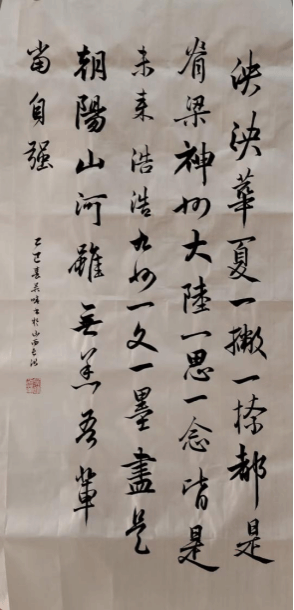 泱泱華夏一撇一捺都是
脊梁神州大陸一思一念皆是
未来浩浩九州一文一墨盡是
朝陽山河雖無恙吾輩
當自强
乙巳
書於山西長治